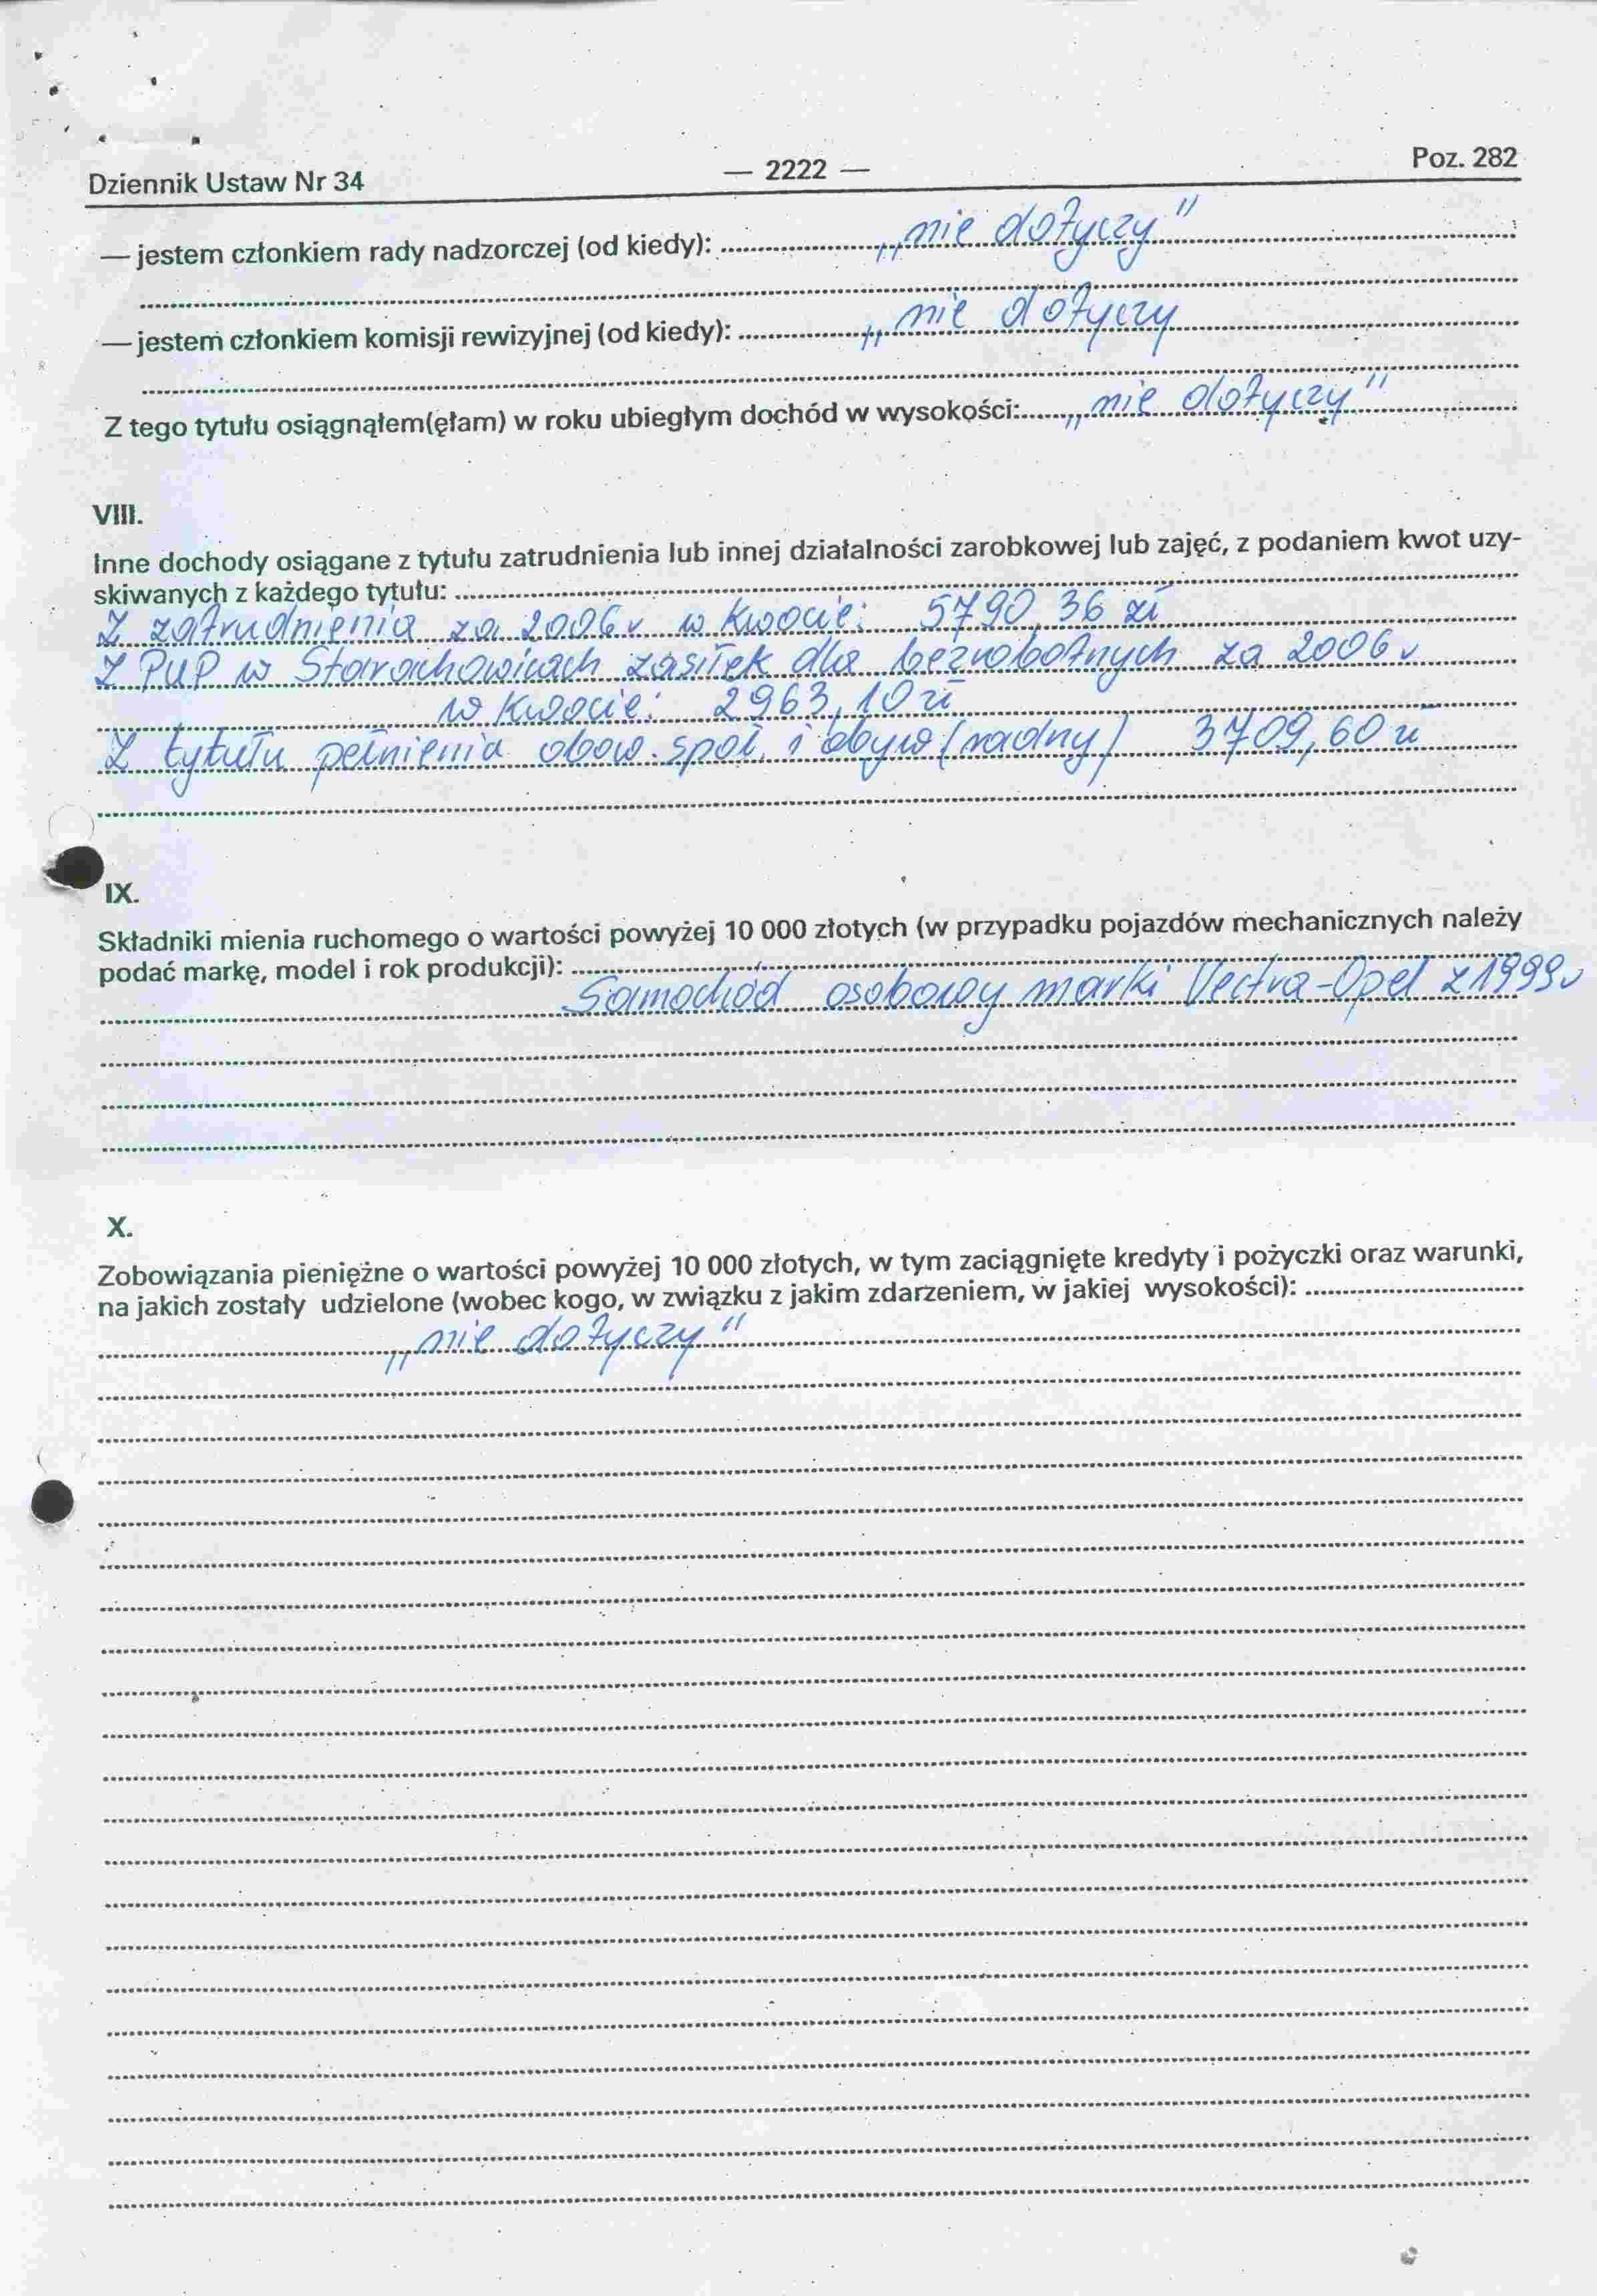 Dziennik Ustaw Nr 34 — 2222 — Poz. 282
— jestem członkiem rady nadzorczej (od kiedy): „nie dotyczy"
— jestem członkiem komisji rewizyjnej (od kiedy): „nie dotyczy
Z tego tytułu osiągnąłem(ęłam) w roku ubiegłym dochód w wysokości: „nie dotyczy"
VIII.
Inne dochody osiągane z tytułu zatrudnienia lub innej działalności zarobkowej lub zajęć, z podaniem kwot uzy-
skiwanych z każdego tytułu:
Z zatrudnienia za 2006r w kwocie: 5790,36 zł
Z PUP w Starachowicach zasiłek dla bezrobotnych za 2006r
w kwocie: 2963,10 zł
Z tytułu pełnienia obow. społ. i obyw (radny) 3709,60 zł
IX.
Składniki mienia ruchomego o wartości powyżej 10 000 złotych (w przypadku pojazdów mechanicznych należy
podać markę, model i rok produkcji):
Samochód osobowy marki Vectra-Opel z 1999r
X.
Zobowiązania pieniężne o wartości powyżej 10 000 złotych, w tym zaciągnięte kredyty i pożyczki oraz warunki,
na jakich zostały udzielone (wobec kogo, w związku z jakim zdarzeniem, w jakiej wysokości):
„nie dotyczy"